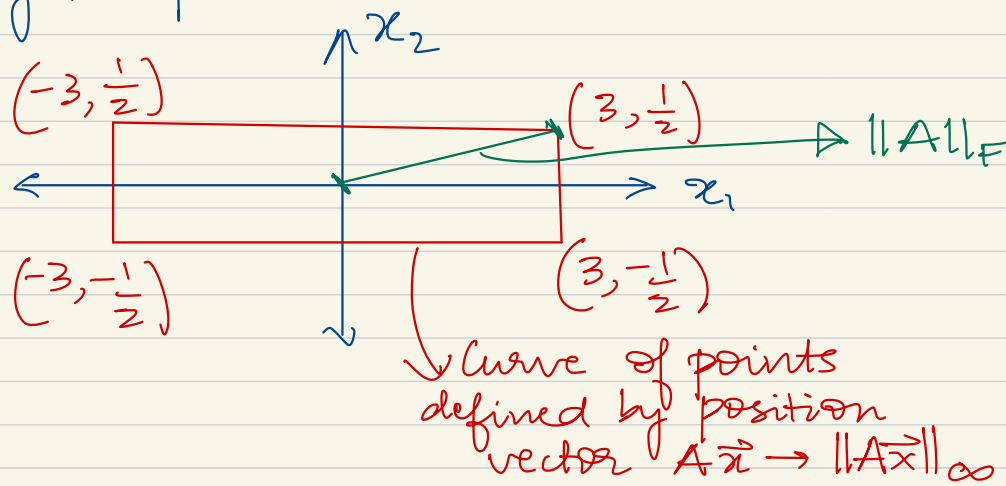 x₂
(-3, 1/2)
(3, 1/2)
||A||_F
x₁
(-3, -1/2)
(3, -1/2)
Curve of points
defined by position
vector Ax⃗ → ||Ax⃗||_∞